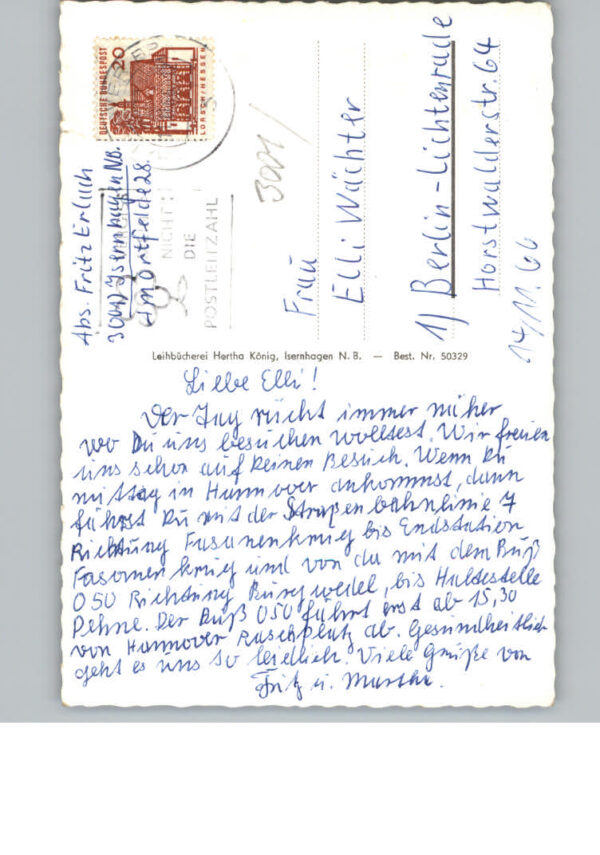 DEUTSCHE BUNDESPOST
20
LORSCH/HESSEN
NICHT:
DIE
POSTLEITZAHL
Abs. Fritz Erlach
3001) Isernhagen N.B.
Amortfelde 28.
3001/
Frau
Elli Wächter
1) Berlin-Lichtenrade
Horstwalderstr. 64
14/11.66
Leihbücherei Hertha König, Isernhagen N. B. — Best. Nr. 50329
Liebe Elli!
Der Tag rückt immer näher
wo Du uns besuchen wolltest. Wir freuen
uns schon auf Deinen Besuch. Wenn Du
mittag in Hannover ankommst, dann
fährst Du mit der Straßenbahnlinie 7
Richtung Fasanenkrug bis Endstation
Fasanenkrug und von da mit dem Buß
050 Richtung Burgwedel, bis Haltestelle
Dehne. Der Buß 050 fährt erst ab 15,30
von Hannover Raschplatz ab. Gesundheitlich
geht es uns so leidlich. Viele Grüße von
Fritz u. Martha.